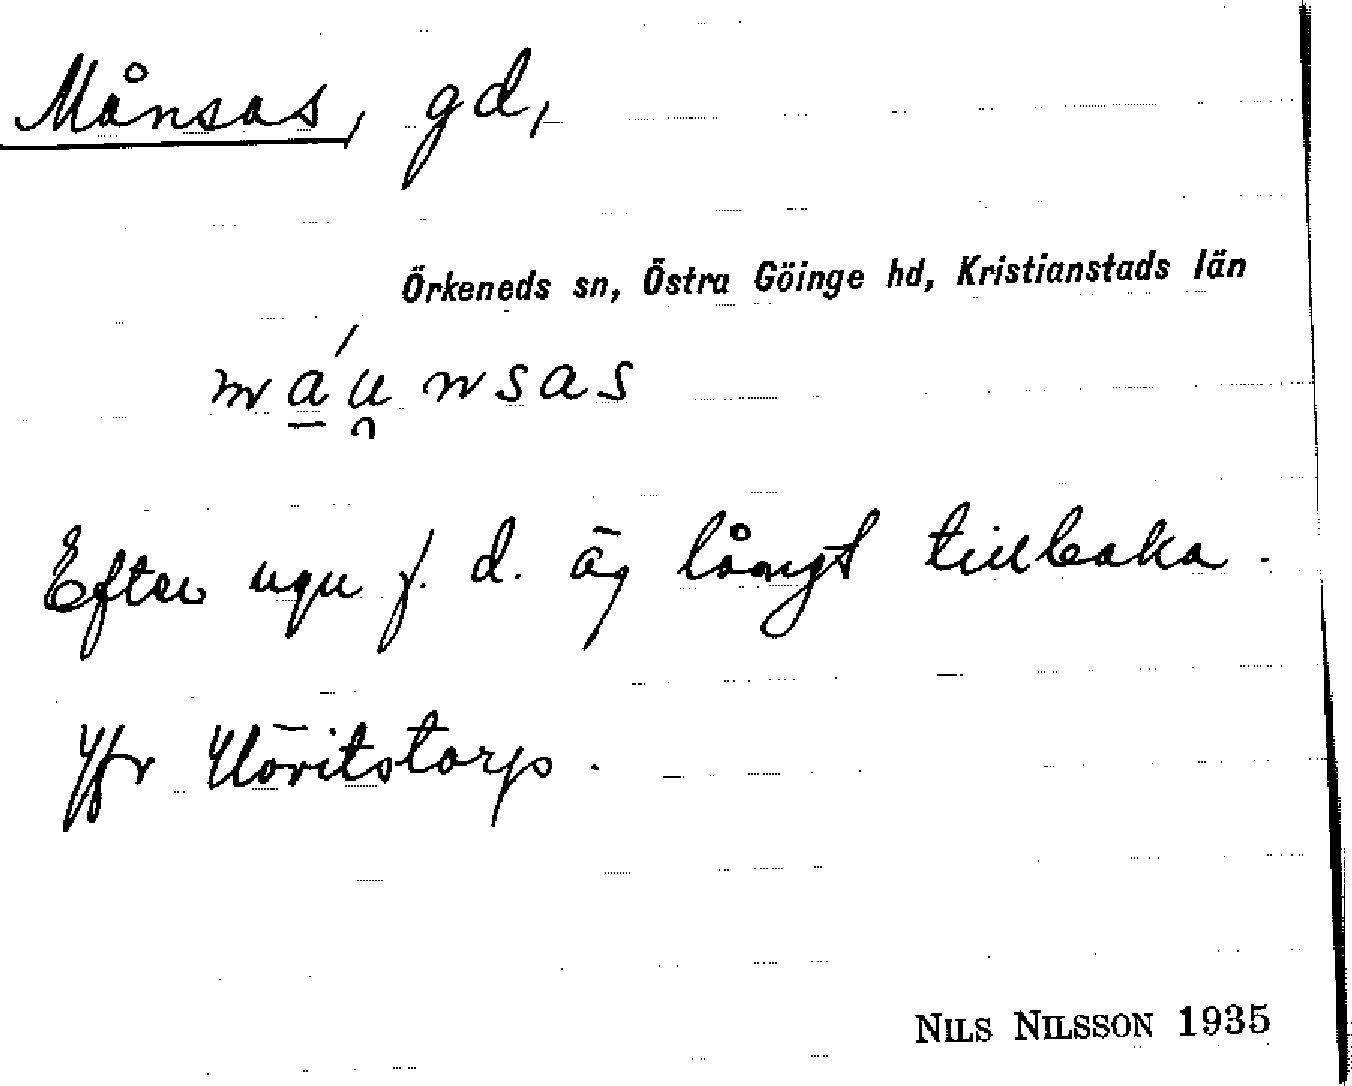 Månsas, gd,
Örkeneds sn, Östra Göinge hd, Kristianstads län
máu̯nsas
Efter ngn f. d. äg långt tillbaka.
Jfr Vöritstorp.
NILS NILSSON 1935